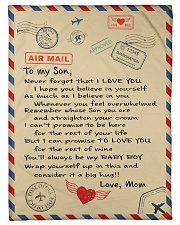 AIR MAIL
APPROVED
To my Son,
Never forget that I LOVE YOU
I hope you believe in yourself
As much as I believe in you
Whenever you feel overwhelmed
Remember whose son you are
and straighten your crown
I can't promise to be here
for the rest of your life
But I can promise TO LOVE YOU
for the rest of mine
You'll always be my BABY BOY
Wrap yourself up in this and
consider it a big hug!!
Love, Mom